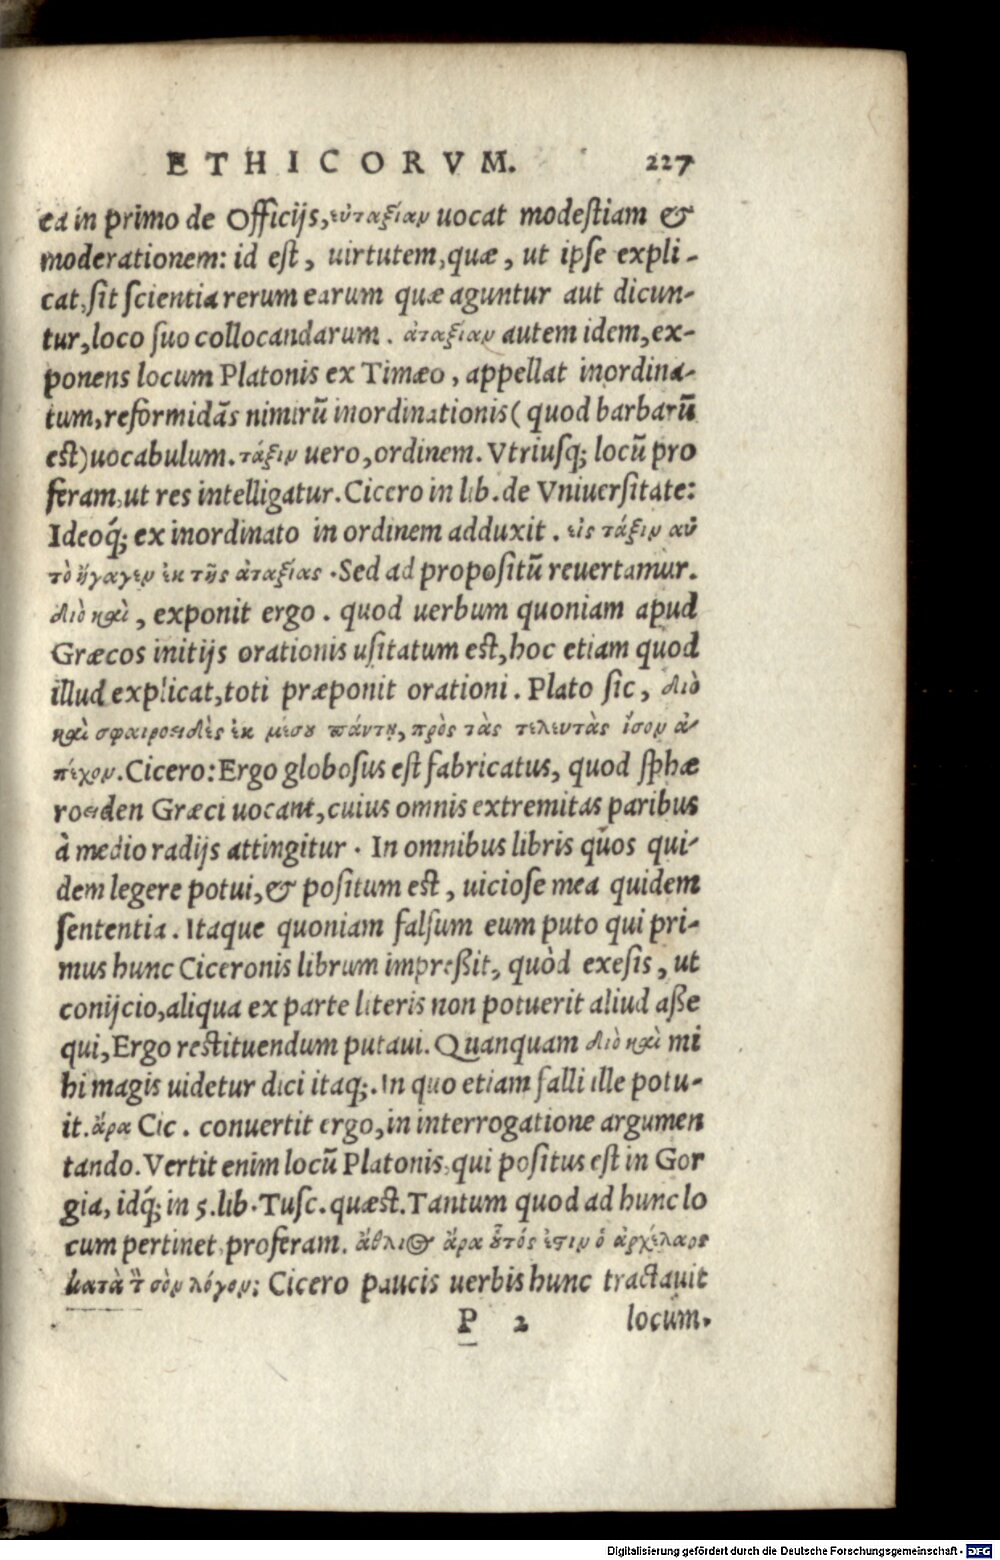 ETHICORVM. 227
ea in primo de Officijs, εὐταξίαν uocat modestiam &
moderationem: id est, uirtutem, quæ, ut ipse expli-
cat, sit scientia rerum earum quæ aguntur aut dicun-
tur, loco suo collocandarum. ἀταξίαν autem idem, ex-
ponens locum Platonis ex Timæo, appellat inordina-
tum, reformidãs nimirũ inordinationis (quod barbarũ
est) uocabulum. τάξιν uero, ordinem. Vtriusq; locũ pro
feram, ut res intelligatur. Cicero in lib. de Vniuersitate:
Ideoq́; ex inordinato in ordinem adduxit. εἰς τάξιν αὐ
τὸ ἤγαγεν ἐκ τῆς ἀταξίας. Sed ad propositũ reuertamur.
διὸ καὶ, exponit ergo. quod uerbum quoniam apud
Græcos initijs orationis usitatum est, hoc etiam quod
illud explicat, toti præponit orationi. Plato sic, διὸ
καὶ σφαιροειδὲς ἐκ μέσου πάντῃ, πρὸς τὰς τελευτὰς ἴσον ἀ-
πέχον. Cicero: Ergo globosus est fabricatus, quod sphæ
roειden Græci uocant, cuius omnis extremitas paribus
à medio radijs attingitur. In omnibus libris quos qui-
dem legere potui, & positum est, uiciose mea quidem
sententia. Itaque quoniam falsum eum puto qui pri-
mus hunc Ciceronis librum impreßit, quòd exesis, ut
conijcio, aliqua ex parte literis non potuerit aliud aße
qui, Ergo restituendum putaui. Quanquam διὸ καὶ mi
hi magis uidetur dici itaq;. In quo etiam falli ille potu-
it. ἄρα Cic. conuertit ergo, in interrogatione argumen
tando. Vertit enim locũ Platonis, qui positus est in Gor
gia, idq́; in 5. lib. Tusc. quæst. Tantum quod ad hunc lo
cum pertinet, proferam. ἄθλιος ἄρα οὗτός ἐστιν ὁ ἀρχέλαος
κατὰ τὸν σὸν λόγον; Cicero paucis uerbis hunc tractauit
P 2 locum.
Digitalisierung gefördert durch die Deutsche Forschungsgemeinschaft - DFG